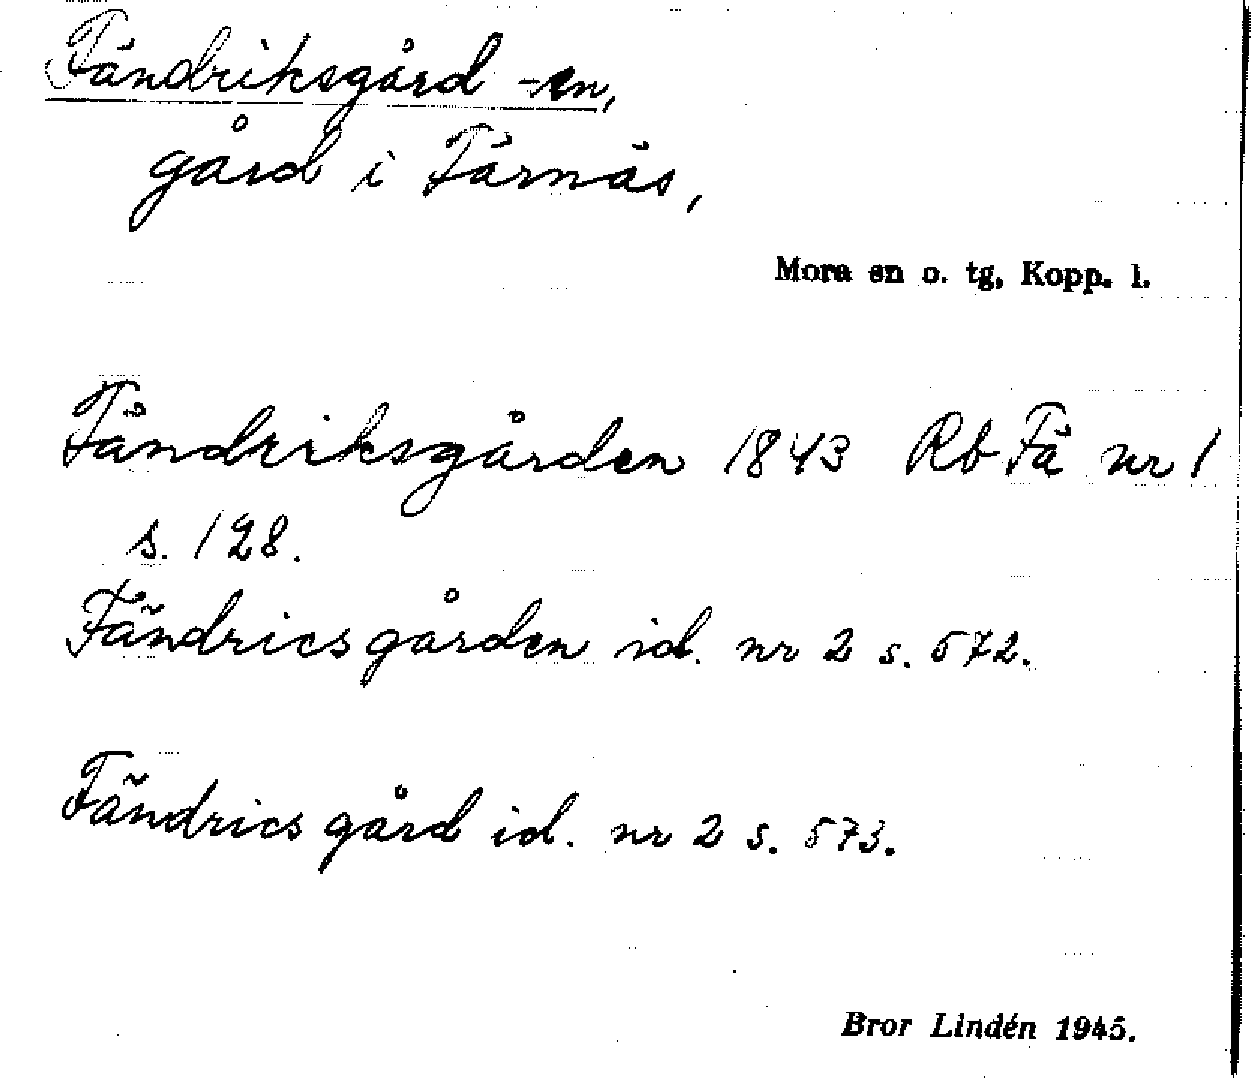 Fändriksgård -en,
gård i Färnäs,
Mora sn o. tg, Kopp. l.
Fändriksgården 1843 Rb Fä nr 1
s. 128.
Fändricsgården id. nr 2 s. 572.
Fändrics gård id. nr 2 s. 573.
Bror Lindén 1945.